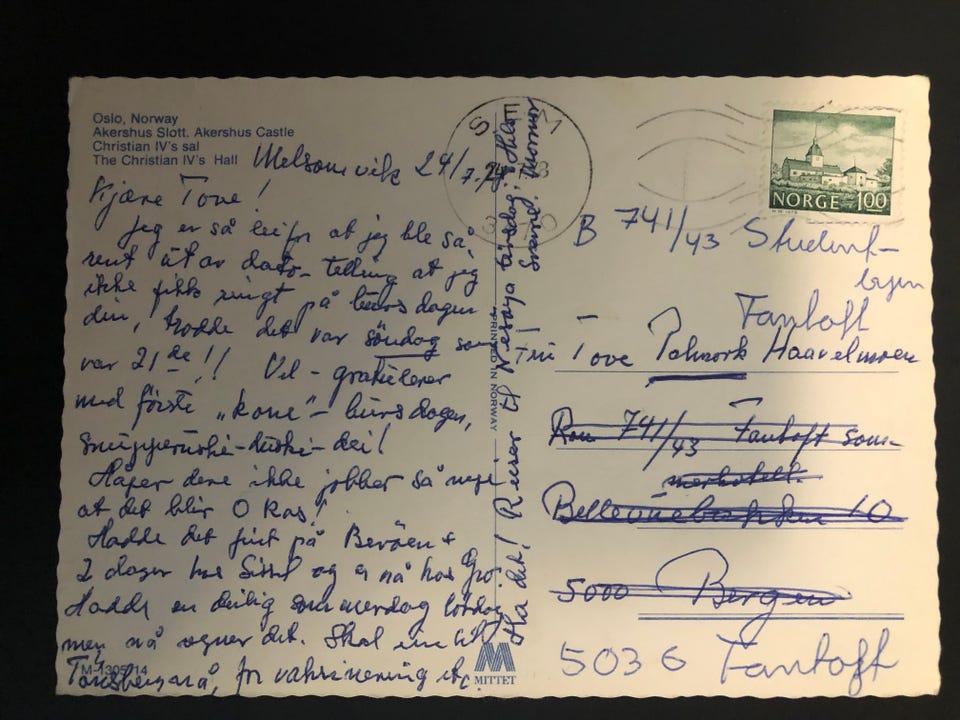 Oslo, Norway
Akershus Slott. Akershus Castle
Christian IV's sal
The Christian IV's Hall
Melsomvik 24/7-
Kjære Tove!
Jeg er så lei for at jeg ble så
rent ut av dato-telling at jeg
ikke fikk ringt på bursdagen
din, trodde det var søndag som
var 21de!! Vel - gratulerer
med første „kone"-bursdagen,
Snupperuski-duski-dei!
Håper dere ikke jobber så mye
at det blir 0 kos!
Hadde det fint på Berøen +
2 dager hos Sissel og er nå hos Gro
Hadde en deilig sommerdag lördag
men nå regner det. Skal inn til
Tønsberg nå, for vaksinering etc.
M-1305/14
Ha det! Reiser til Nesøya tirsdag. Hils
Svein. Mormor
PRINTED IN NORWAY
MITTET
SEM
NORGE 100
B 741/43 Student-
byen
Fantoft
Tove Haavelmoen
Rom 741/43 Fantoft som-
merhotell.
10
5000 Bergen
5036 Fantoft